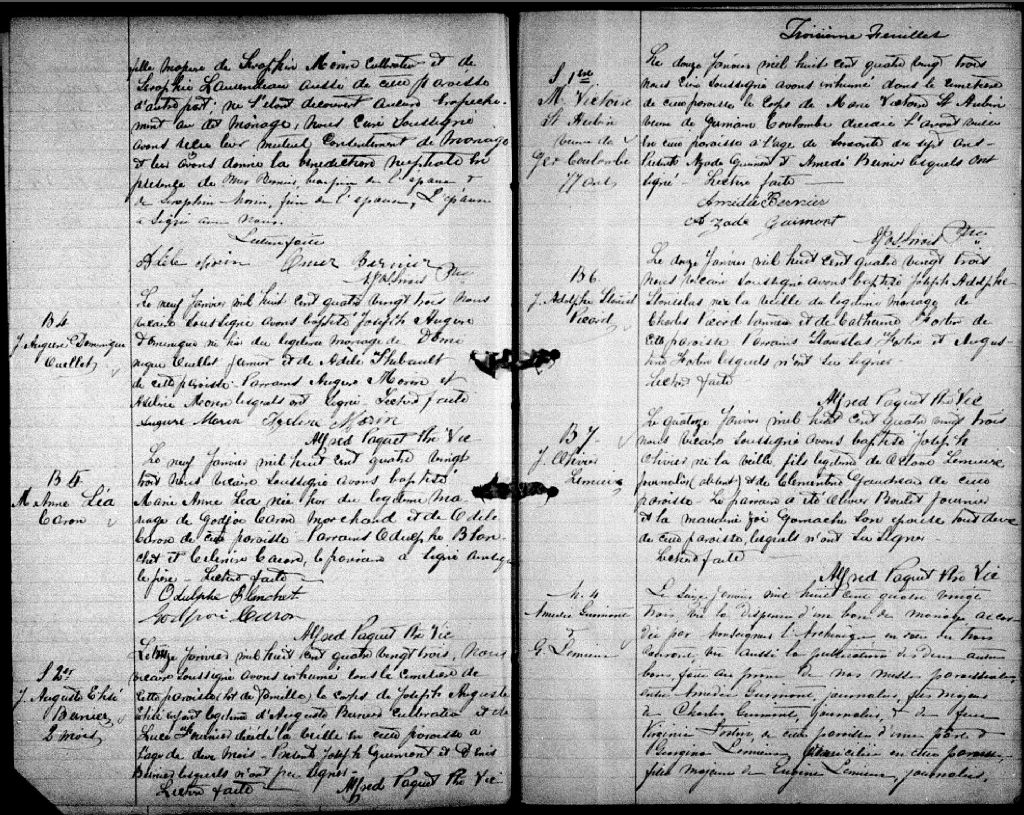 fille majeure de Séraphin Morin Cultivateur et de
Séraphie Laverdiau aussi de cette paroisse
d'autre part; ne s'étant découvert aucun empeche-
ment au dit mariage, Nous Curé Soussigné
avons reçu leur mutuel Consentement de Mariage
et leur avons donné la bénédiction nuptiale en
présence de Bernier, de l'époux &
de Séraphin Morin, de l'épouse, L'épouse
a signé avec nous.
Lecture faite
Adèle Morin Omer Bernier
Ptre
B 4
J. Auguste Dominique
Ouellet
Le neuf Janvier mil huit cent quatre vingt trois Nous
vicaire soussigné avons baptisé Joseph Auguste
Dominique né hier du légitime mariage de Domi
nique Ouellet fermier et de Adèle Thibault
de cette paroisse. Parrains Auguste Morin et
Azeline Morin lesquels ont signé. Lecture faite
Auguste Morin Azeline Morin
Alfred Paquet Ptre Vic
B 5
M. Anne Léa
Caron
Le neuf Janvier mil huit cent quatre vingt
trois Nous vicaire soussigné avons baptisé
Marie Anne Léa née hier du légitime ma
riage de Godfroi Caron Marchand et de Odile
Caron de cette paroisse. Parrains Odulphe Blan-
chet et Célénire Caron, le parrain a signé
le père - Lecture faite
Odulphe Blanchet
Godfroi Caron
Alfred Paquet Ptre Vic
S 2me
J. Auguste Elisé
Bernier
2 mois
Le onze Janvier mil huit cent quatre vingt trois, Nous
vicaire soussigné avons inhumé dans le cimetière de
cette paroisse (lot de famille) le corps de Joseph Auguste
Elisé enfant légitime d'Auguste Bernier cultivateur et de
Luce Fournier décédé la veille en cette paroisse à
l'age de deux mois - Présents Joseph Guimont et
Bernier lesquels n'ont pu signer -
Lecture faite Alfred Paquet Ptre Vic
Troisième Feuillet
S 1re
M. Victoire
St Aubin
veuve de
Ger Coulombe
77 ans
Le douze Janvier mil huit cent quatre vingt trois
nous curé soussigné avons inhumé dans le cimetière
de cette paroisse le corps de Marie Victoire St Aubin
veuve de Germain Coulombe décédée l'avant veille
en cette paroisse à l'age de soixante dix sept ans -
Azade Guimont & Amédé Bernier lesquels ont
signé - Lecture faite
Amédée Bernier
Azade Guimont
Ptre
B 6
J. Adolphe Stanislas
Picard
Le douze Janvier mil huit cent quatre vingt trois
Nous vicaire soussigné avons baptisé Joseph Adolphe
Stanislas né la veille du légitime mariage de
Charles Picard et de Catherine Fortin de
cette paroisse Parrains Stanislas Fortin et Augus-
tine Fortin lesquels n'ont su signer
Lecture faite
Alfred Paquet Ptre Vic
B 7
J. Olivier
Lemieux
Le quatorze Janvier mil huit cent quatre vingt trois
nous vicaire soussigné avons baptisé Joseph
Olivier né la veille fils légitime de Octave Lemieux
(absent) et de Clémentine Gaudreau de cette
paroisse - Le parrain a été Olivier Boulet Journalier
et la marraine Gamache son épouse tout deux
de cette paroisse, lesquels n'ont su signer -
Lecture faite
Alfred Paquet Ptre Vic
M. 4
Amédée Guimont
&
G. Lemieux
Le seize Janvier mil huit cent quatre vingt
trois, vu la dispense d'un ban de mariage accor
dée par Monseigneur l'Archevêque en date du trois
courant, vu aussi la publication de deux autres
bans, faite au prône de nos messes paroissiales
entre Amédée Guimont journalier, fils majeur
de Charles Guimont, journalier, & de feue
Virginie Fortin, de cette paroisse d'une part &
Georgina Lemieux domiciliée en cette paroisse,
fille majeure de Eugène Lemieux, journalier,